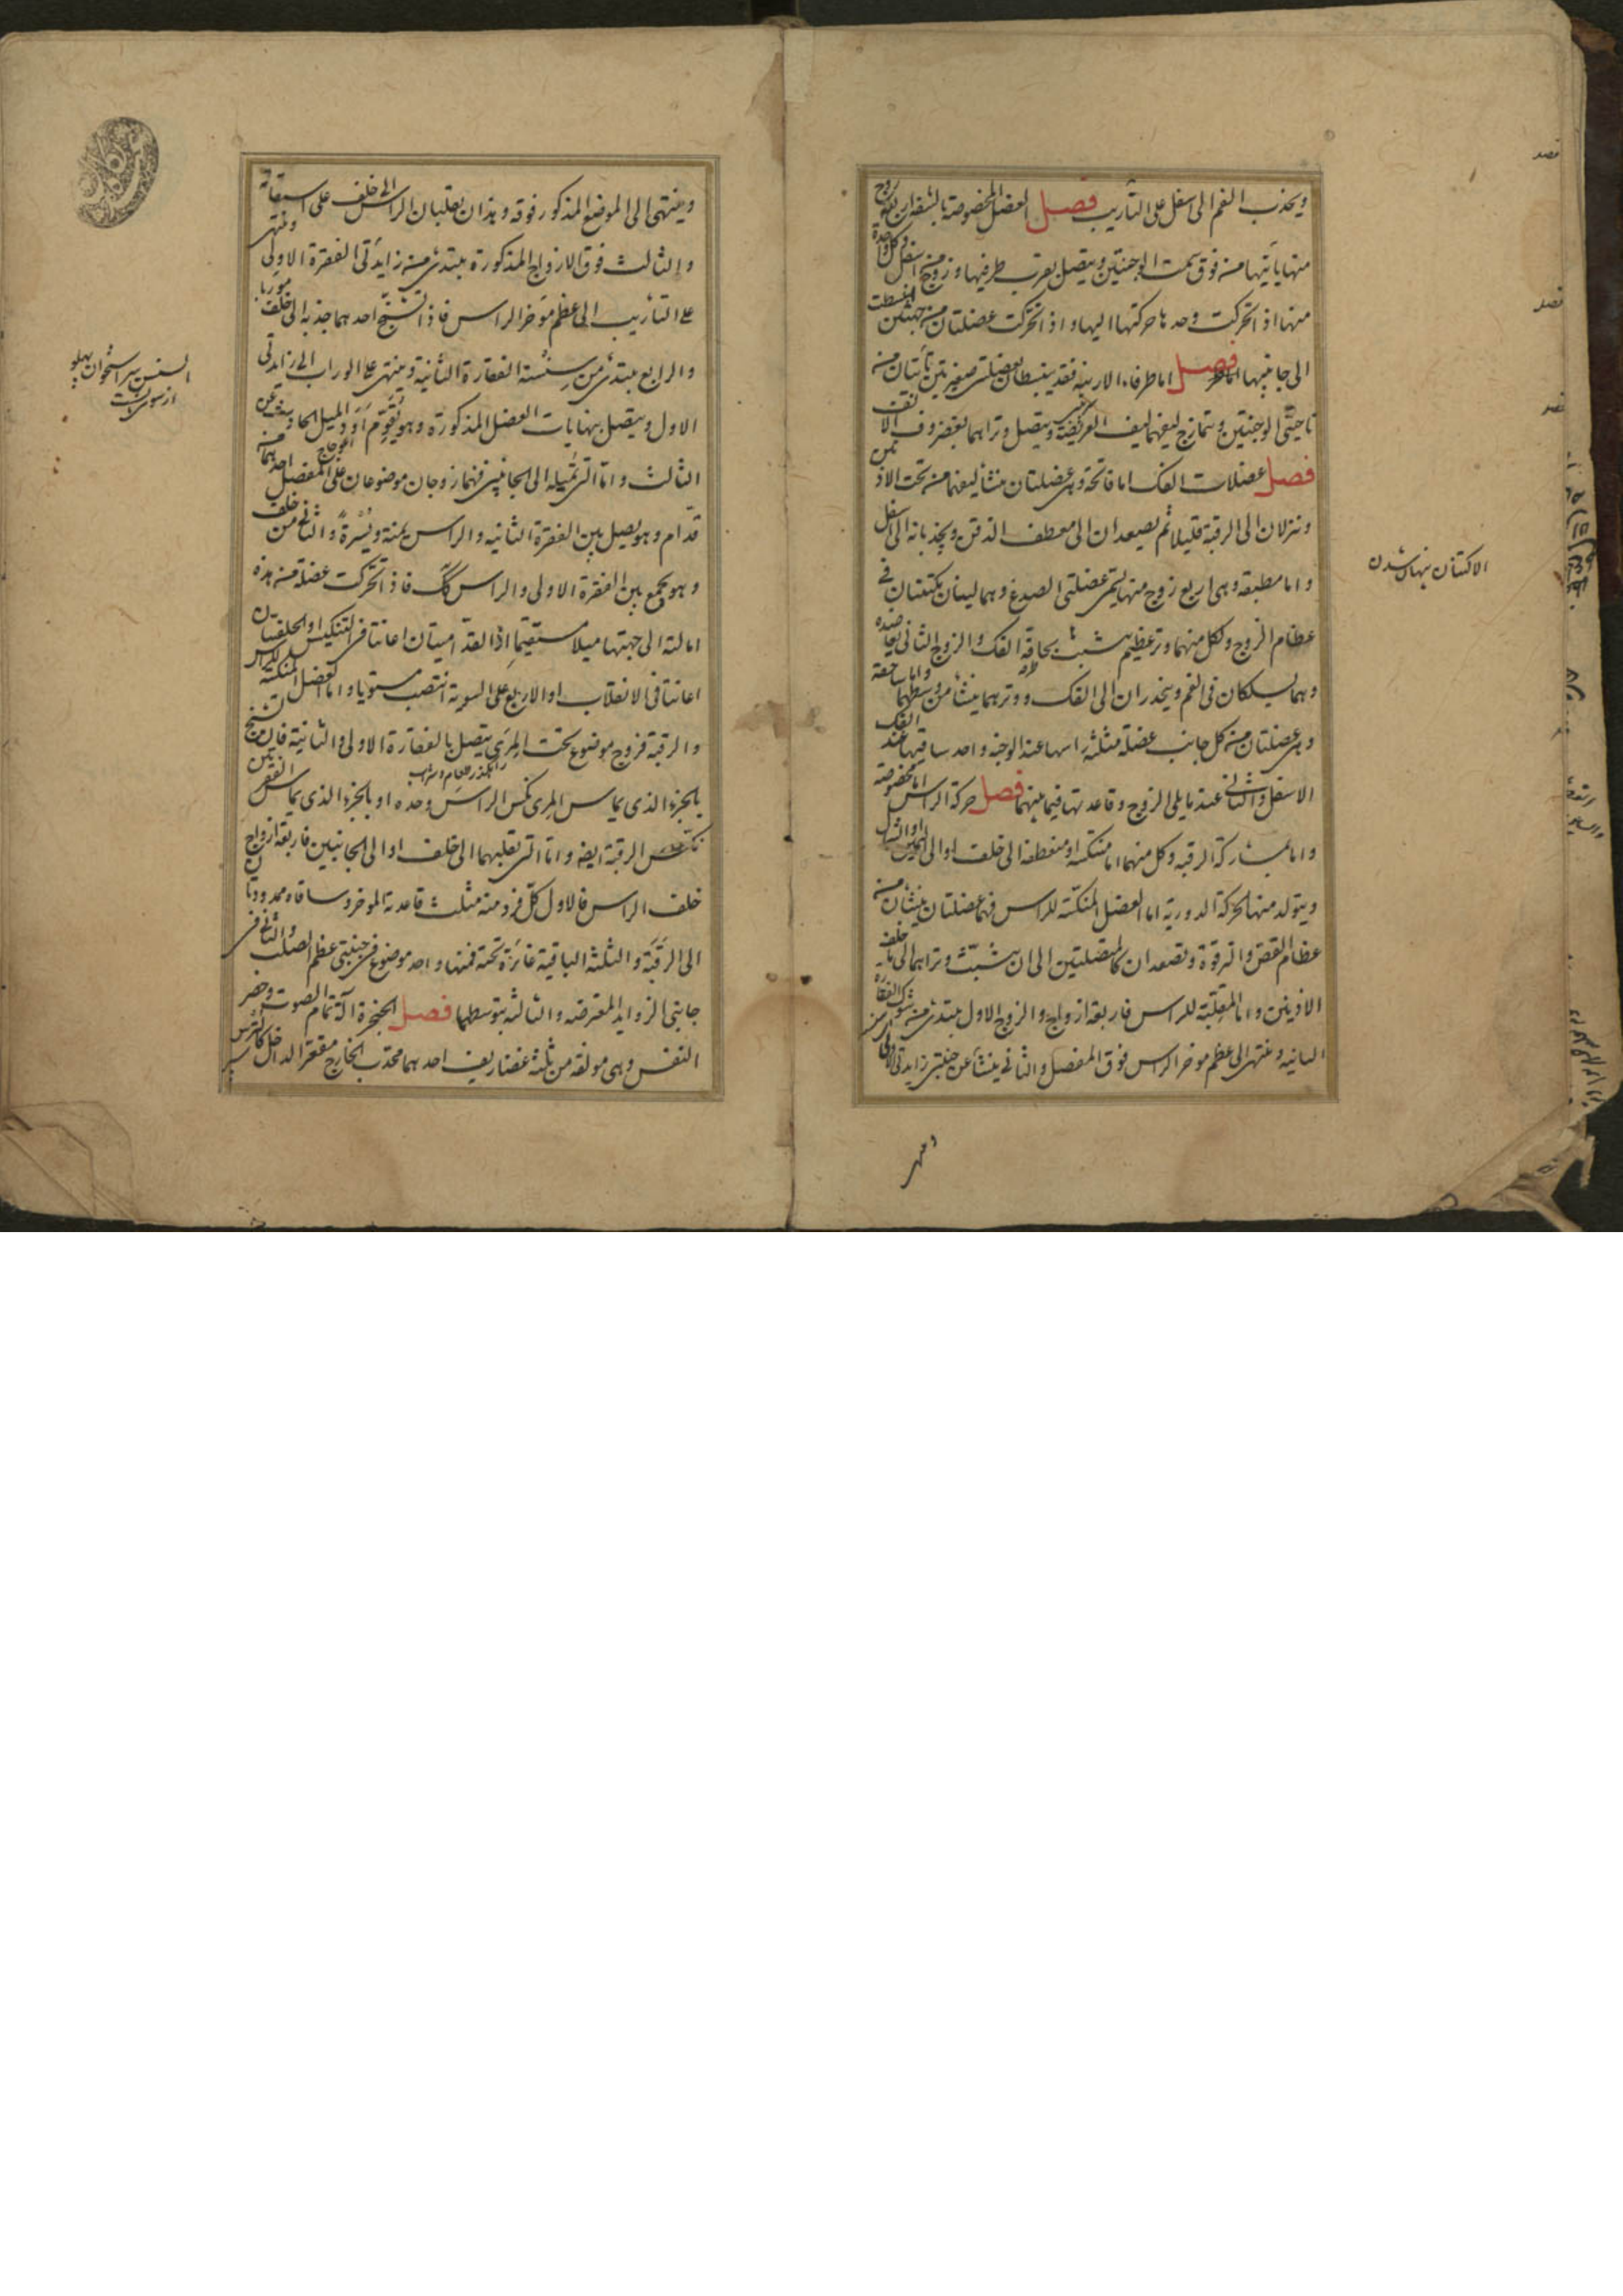 ويجذب الفم الى اسفل على التأريب فصل العضل المخصوصة بالشفة اربع زوج
منها يأتيها من فوق سمت الوجنتين ويتصل بقرب طرفيها وزوج من اسفل وكل واحدة
منها اذا تحركت وحدها حركتها اليها واذا تحركت عضلتان من جهتين انبسطت
الى جانبيها فصل اما طرفاء الارنبة فقد ينبسطان بعضلتين صغيرتين تأتيان من
ناحيتي الوجنتين ويتمازج ليفهما ليف العريضية ويتصل وتراهما بغضروف الانف
فصل عضلات الفك اما فاتحة وهى عضلتان منشأ ليفهما من تحت الاذن
وتنزلان الى الرقبة قليلا ثم يصعدان الى معطف الذقن ويجذبانه الى اسفل
واما مطبقة وهى اربع زوج منها يسمى عضلتى الصدغ وهما ليفان يكتنتان فى
عظام الزوج ولكل منهما وتر عظيم يتشبث بحافة الفك والزوج الثانى يعاضده
وهما يسلكان فى الفم وينحدران الى الفك ووترهما ينشأ من وسطهما واما ماضغة
وهى عضلتان من كل جانب عضلة مثلثة راسها عند الوجنة واحد ساقيها عند الفك
الاسفل والثانى عند ما يلى الزوج وقاعدتها فيما بينهما فصل حركة الراس اما مخصوصة
واما بمشاركة الرقبة وكل منهما اما منكسة او منعطفة الى خلف او الى اليمين او الشمال
ويتولد منها الحركة الدورية اما العضل المنكسة للراس فهما عضلتان ينشان من
عظام القص والترقوة وتصعدان كالمتصلتين الى ان يتشبث وتراهما الى ما خلف
الاذنين واما المقلبة للراس فاربعة ازواج والزوج الاول يبتدئ من شوك الفقارة
الثانية وينتهى الى عظم موخر الراس فوق المفصل والثانى ينشأ عن جنبتى زايدتى الاولى
الاكتنان پنهان شدن
وينتهى الى الموضع المذكور فوقه وهذان يقلبان الراس الى خلف على استقامة
والثالث فوق الازواج المذكورة يبتدئ من زايدتى الفقرة الاولى وينتهى
على التأريب الى عظم موخر الراس فاذا تشنج احدهما جذبه الى خلف موربا
والرابع يبتدئ من سنسنة الفقارة الثانية وينتهى على الوراب الى زايدتى
الاول ويتصل بنهايات العضل المذكورة وهو يقوم اود الميل الحادث عن
الثالث واما التى تميله الى الجانبين فهما زوجان موضوعان على المفصل احدهما من
قدام وهو يصل بين الفقرة الثانية والراس يمنة ويسرة والثانى من خلف
وهو يجمع بين الفقرة الاولى والراس كك فاذا تحركت عضلة من هذه
امالته الى جهتها ميلا مستقيما اذا القداميتان اعانتا فى التنكيس او الخلفيتان
اعانتا فى الانقلاب او الاربع على السوية انتصب مستويا واما العضل المنكسة للراس
والرقبة فزوج موضوع تحت المرى يتصل بالفقارة الاولى والثانية فان تشنج
بالجزء الذى يماس المرى نكس الراس وحده او بالجزء الذى يماس الفقرتين
نكس الرقبة ايضه واما التى تقلبهما الى خلف او الى الجانبين فاربعة ازواج
خلف الراس فالاول كل فرد منه مثلث قاعدته الموخر وساقاه ممدودتان
الى الرقبة والثلثة الباقية غائرة تحته فمنها واحد موضوع فى جنبتى عظم الصلب والثانى فى
جانبى الزوايد المعترضة والثالثة يتوسطهما فصل الحنجرة آلة تمام الصوت وحصر
النفس وهى مولفة من ثلثة غضاريف احدهما محدب الخارج مقعر الداخل كالترس
السنسن سر استخوان پهلو
از سوى پشت